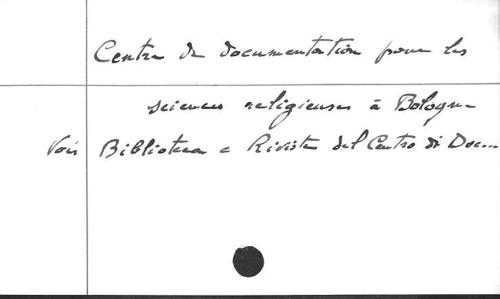 Centre de documentation pour les
sciences religieuses à Bologne
Voir Biblioteca e Rivista del Centro di Doc...